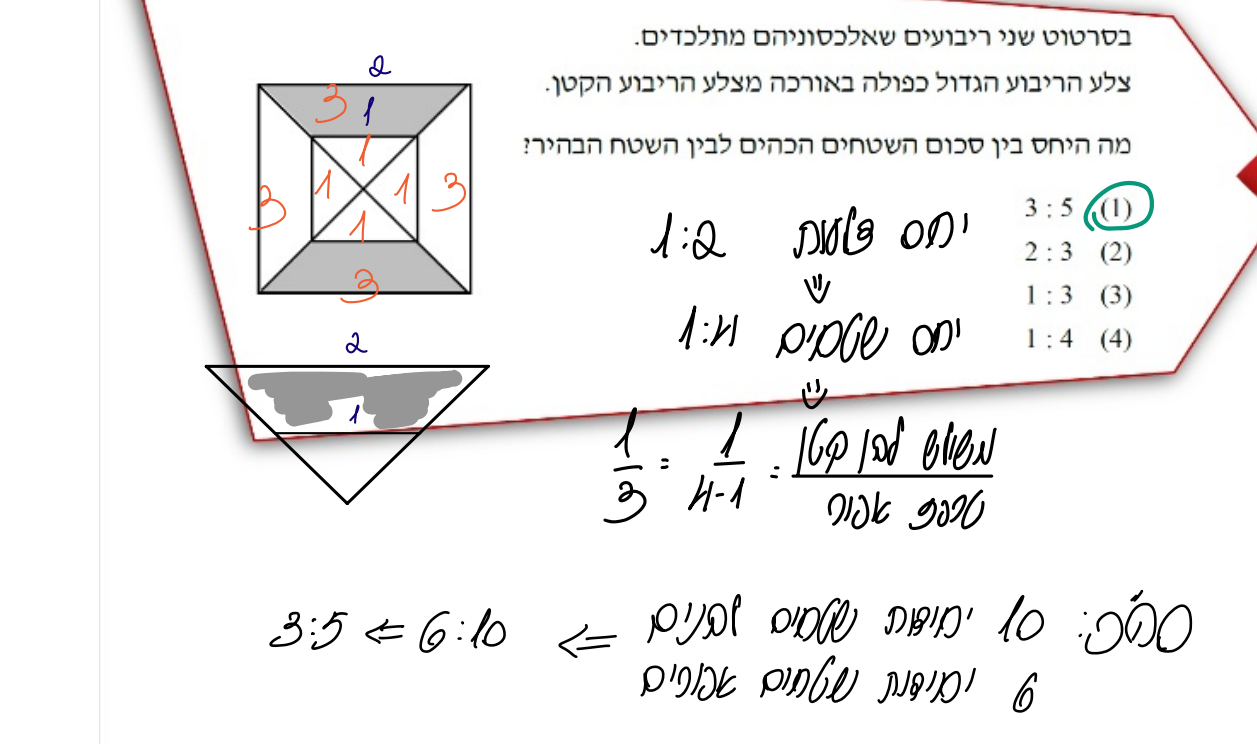 בסרטוט שני ריבועים שאלכסוניהם מתלכדים.
צלע הריבוע הגדול כפולה באורכה מצלע הריבוע הקטן.
מה היחס בין סכום השטחים הכהים לבין השטח הבהיר?
(1) 3 : 5
(2) 2 : 3
(3) 1 : 3
(4) 1 : 4
2
3 1
1
3 1 1 3
1
3
2
1
יחס צלעות 1:2
⇓
יחס שטחים 1:4
⇓
משולש לבן קטן / טרפז אפור = 1/4-1 = 1/3
סה"כ: 10 יחידות שטחים לבנים ⇐ 6:10 ⇐ 3:5
6 יחידות שטחים אפורים